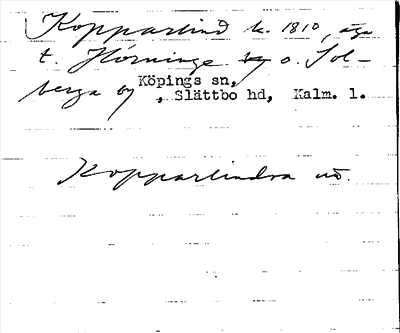 Kopparlind k. 1810, äga
t. Hörninge by o. Sol-
berga by
Köpings sn,
, Slättbo hd, Kalm. l.
Kopparlindra uö.